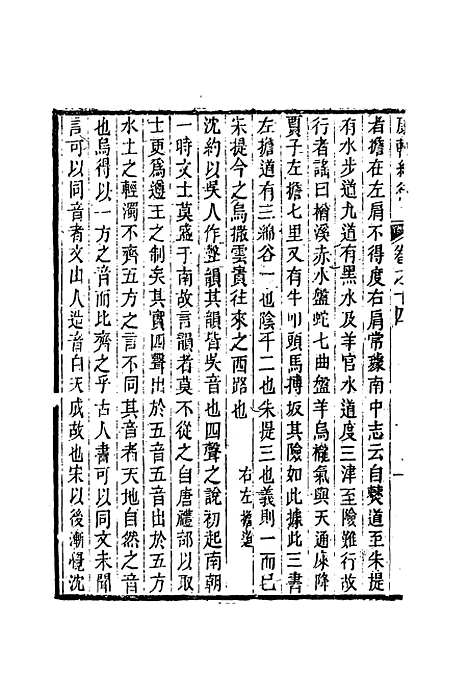 康輶紀行 卷之十四
者擔在左肩不得度右肩常璩南中志云自僰道至朱提
有水步道九道有黑水及羊官水道度三津至險難行故
行者謠曰楢溪赤水盤蛇七曲盤羊烏櫳氣與天通庲降
賈子左擔七里又有牛叩頭馬搏坂其險如此據此三書
左擔道有三綿谷一也陰平二也朱提三也義則一而已
朱提今之烏撒雲貴往來之西路也
右左擔道
沈約以吳人作聲韻其韻皆吳音也四聲之說初起南朝
一時文士莫盛于南故言韻者莫不從之自唐禮部以取
士更爲遵王之制矣其實四聲出於五音五音出於五方
水土之輕濁不齊五方之言不同其音者天地自然之音
也烏得以一方之音而比齊之乎古人書可以同文未聞
言可以同音者文由人造音自天成故也宋以後漸覺沈